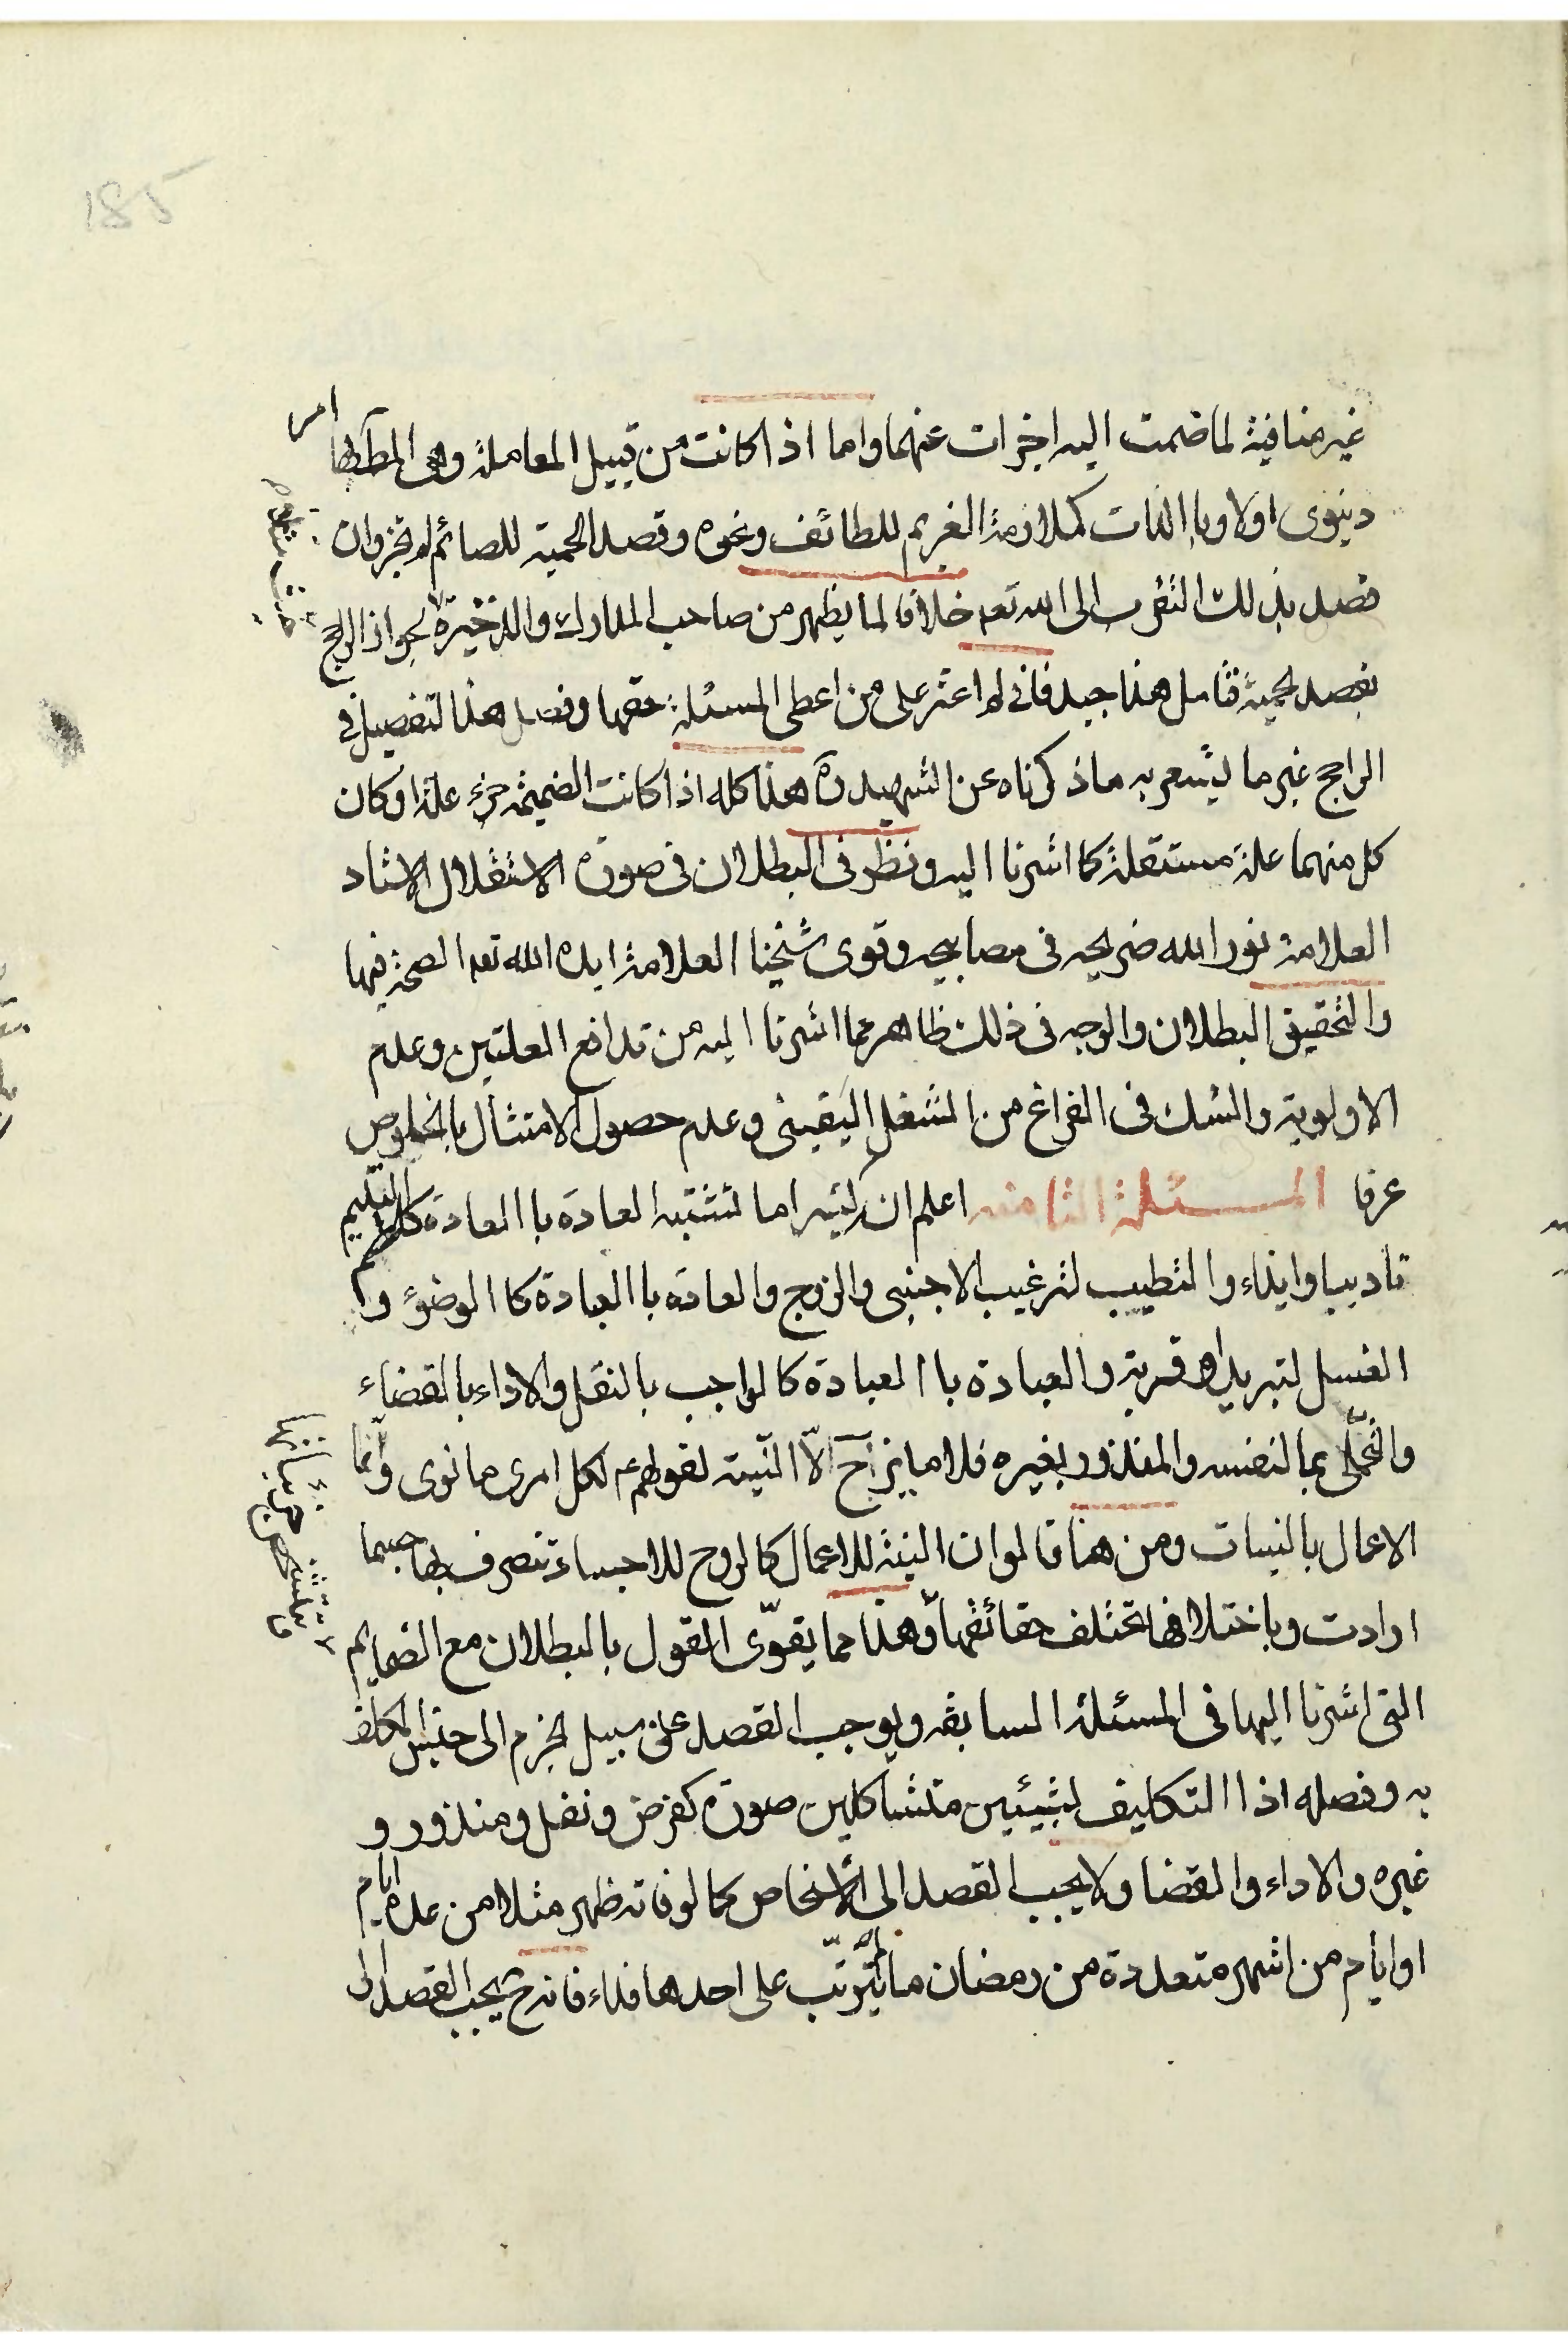 185
غير منافية لما ضمت اليه اجزات عنهما واما اذا كانت من قبيل المعاملة وهى المط بها امر
دنيوى اولا وبا الذات كملازمة الغريم للطائف ونحوه وقصد الحمية للصائم لم تجز وان
قصد بذلك التقرب الى الله تعه خلافا لما يظهر من صاحب المدارك والذخيرة لجواز الراجح
بقصد لحمية فتامل هذا جيد فانى لم اعثر على من اعطى المسئلة حقها وفصل هذا لتفصيل فى
الراجح غير ما يشعر به ماذكرناه عن الشهيد ره هذا كله اذا كانت الضميمه جزء علة او كان
كل منهما علة مستقلة كما اشرنا اليه ونظر فى البطلان فى صورة الاستقلال الاستاد
العلامة نور الله ضريحه فى مصابيحه وقوى شيخنا العلامة ايده الله تعه الصحة فيها
والتحقيق البطلان والوجه فى ذلك ظاهر مما اشرنا اليه من تدافع العلتين وعدم
الاولوية والشك فى الفراغ من الشغل اليقينى وعدم حصول الامتثال بالخلوص
عرفا المسئلة الثامنه اعلم ان كثيرا ما تشتبه العادة با العادة كلطم اليتيم
تاديبا وايذاء والتطيب لترغيب الاجنبى والزوج والعادة با العبادة كا الوضوء و
الغسل لتبريد او قربة والعبادة با العبادة كا لواجب بالنفل والاداء بالقضاء
والتحملى بما لنفسه والمنذور بغيره فلا مايز ح الّا النّية لقولهم ع لكل امرى ما نوى وانّما
الاعمال بالنيات ومن هنا قالوا ان النية للاعمال كالروح للاجساد تتصرف بها حيثما
ارادت وباختلافها تختلف حقائقها وهذا مما يقوّى القول بالبطلان مع الضمايم
التى اشرنا اليها فى المسئلة السابقه ويوجب القصد على سبيل لجزم الى جنس المكلف
به وفصله اذا التكليف لشيئين متشاكلين صورة كفرض ونفل ومنذور و
غيره والاداء والقضا ولا يجب القصد الى الاشخاص كما لو فاته ظهر مثلا من عدة ايام
او ايام من اشهر متعددة من رمضان ما لم يترتّب على احدها فداء فانه ح يجب القصد الى